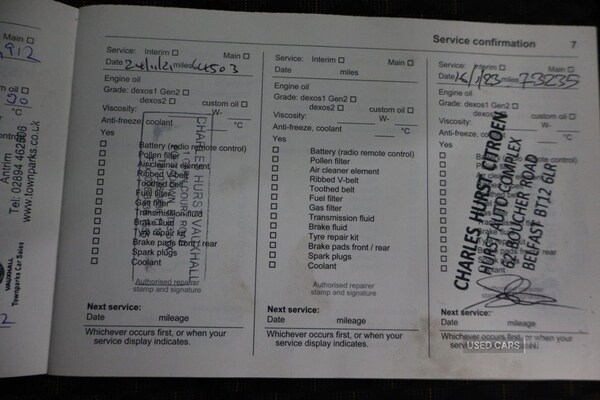 Main
912
m oil
Antrim
Tel: 02894 462606
www.townparks.co.uk
VAUXHALL
Townparks Car Sales
Service confirmation 7
Service: Interim Main
Date miles 44503
Engine oil
Grade: dexos1 Gen2
dexos2 custom oil
Viscosity: W-
Anti-freeze, coolant °C
Yes
Battery (radio remote control)
Pollen filter
Air cleaner element
Ribbed V-belt
Toothed belt
Fuel filter
Gas filter
Transmission fluid
Brake fluid
Tyre repair kit
Brake pads front / rear
Spark plugs
Coolant
CHARLES HURST VAUXHALL
Authorised repairer
stamp and signature
Next service:
Date mileage
Whichever occurs first, or when your
service display indicates.
Service: Interim Main
Date miles
Engine oil
Grade: dexos1 Gen2
dexos2 custom oil
Viscosity: W-
Anti-freeze, coolant °C
Yes
Battery (radio remote control)
Pollen filter
Air cleaner element
Ribbed V-belt
Toothed belt
Fuel filter
Gas filter
Transmission fluid
Brake fluid
Tyre repair kit
Brake pads front / rear
Spark plugs
Coolant
Authorised repairer
stamp and signature
Next service:
Date mileage
Whichever occurs first, or when your
service display indicates.
Service: Interim Main
Date miles 73235
Engine oil
Grade: dexos1 Gen2
dexos2 custom oil
Viscosity: W-
Anti-freeze, coolant °C
Yes
CHARLES HURST CITROEN
HURST AUTO COMPLEX
62 BOUCHER ROAD
BELFAST BT12 6LR
Next service:
Date mileage
Whichever occurs first, or when your
service display
USED CARS